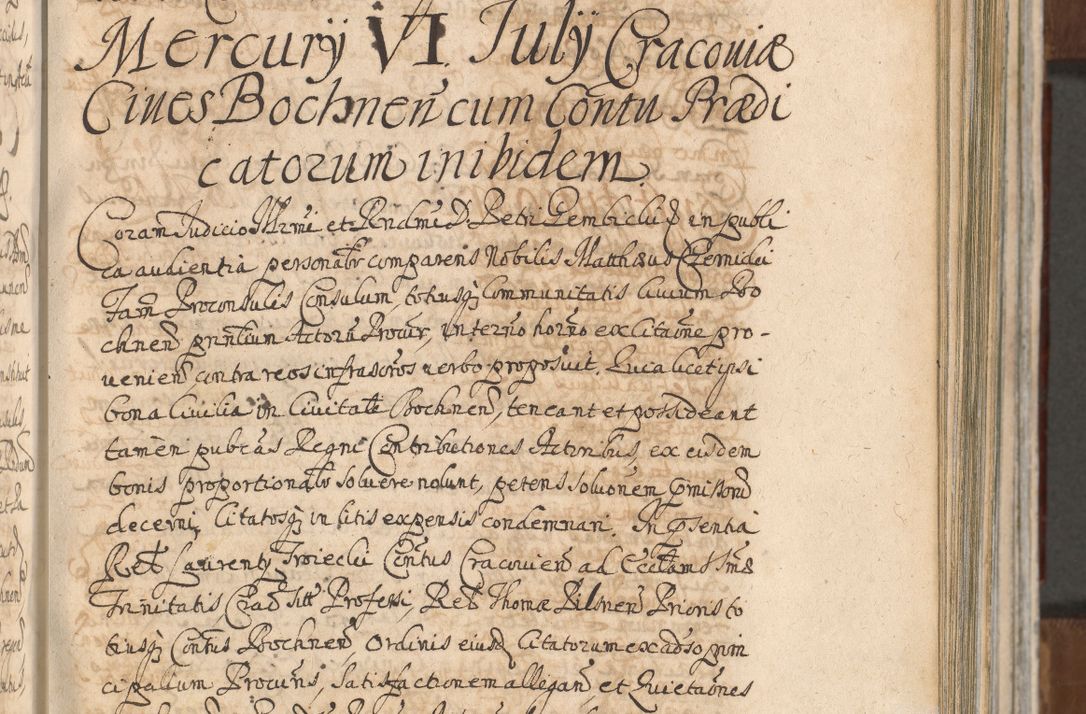 Mercury VI July Cracoviæ
Cives Bochneñ cum Contu Prædi
catorum inibidem
Coram Judicio Illrmi et Rndmi D. Petri Gembiclij in publi
ca audientia personalr comparens Nobilis Matthæus Czemidli
Fam Proconsulis Consulum, totiusq Communitatis Civium Bo
chneñ prinlium Actorũ Procur, in termo horño ex citaõne pro-
venieñ contra reos infrascrõs verbo proposuit. Quia licet ipsi
bona Civilia in Civitate Bochneñ, teneant et possideant
tamen pubcas Regni Contributiones Actoribus, ex eisdem
bonis proportionalr solvere nolunt, petens solvonem pmissorũ
decerni, Citatosq in litis expensis condemnari. In psentia
Reb Laurenty Troieclii Contus Cracovieñ ad Eccłam Ssmæ
Trinitatis, Crac sitt Professi, Reb Thomæ Pilsneñ Prioris to
tiusq Contus Bochneñ, Ordinis eiusd Citatorum ex adso prin
cipalium Procuris, Satisfactionem allegañ et Quietaõnes